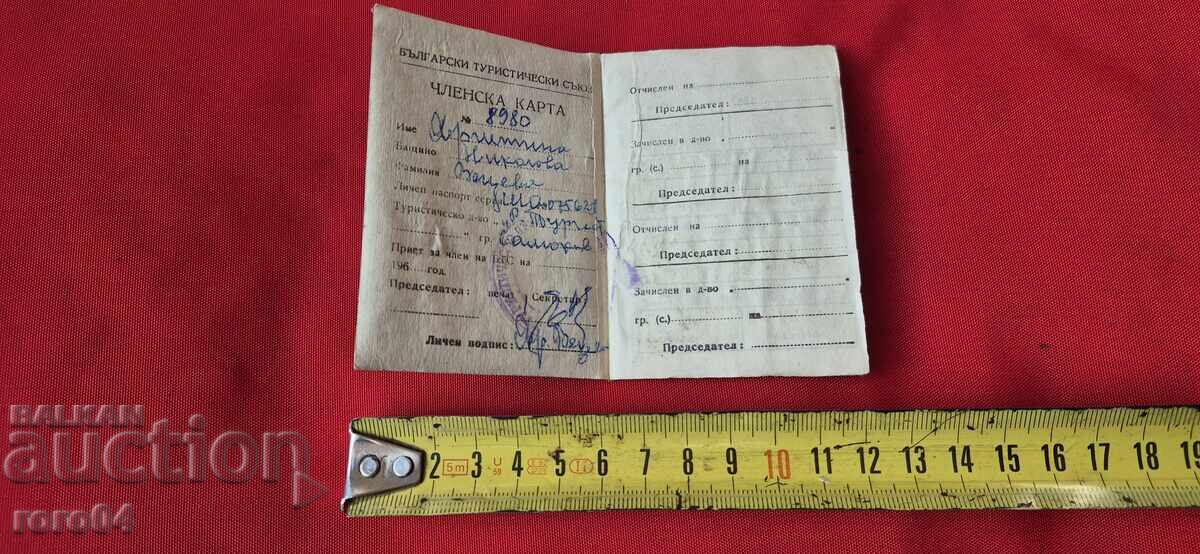 БЪЛГАРСКИ ТУРИСТИЧЕСКИ СЪЮЗ
ЧЛЕНСКА КАРТА
№ 8980
Име
Бащино Николова
Фамилия
Личен паспорт серия
Туристическо д-во
" гр.
Приет за член на БТС на
196 год.
Председател: печат Секретар:
Личен подпис:
Отчислен на
Председател:
Зачислен в д-во
гр. (с.) на
Председател:
Отчислен на
Председател:
Зачислен в д-во
гр. (с.) на
Председател:
2 5m 3 U 59 4 5 6 7 8 9 10 11 12 13 14 15 16 17 18 19
BALKAN
auction
roro04